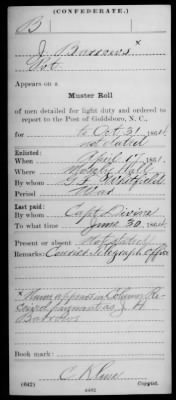 (CONFEDERATE.)
B
J. Barrows x
Not.
Appears on a
Muster Roll
of men detailed for light duty and ordered to
report to the Post of Goldsboro, N. C.,
for to Oct 31, 1864.
not stated
Enlisted:
When April 17, 1861.
Where
By whom G. F. Whitfield
Period War
Last paid:
By whom Capt Divine
To what time June 30, 1864.
Present or absent Not stated
Remarks: Courier Telegraph office
x Name appears in Column Re-
ceived payment as J. H.
Barrow
Book mark:
(642)
Copyist.